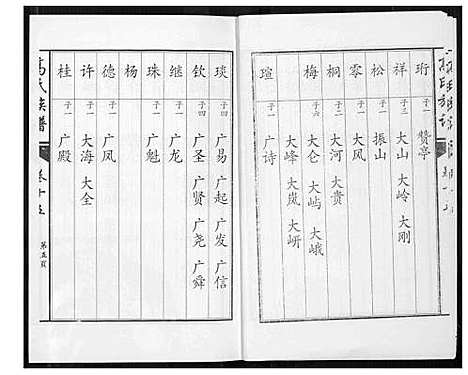 珩 子一 赞亭
祥 子三 大山 大岭 大刚
松 子一 振山
零 子一 大风
桐 子二 大河 大贵
梅 子六 大仑 大屿 大峨
大峰 大岚 大岍
瑄 子一 广诗
琰 子四 广易 广起 广发 广信
钦 子四 广圣 广贤 广尧 广舜
继 子一 广龙
珠 子一 广魁
杨
德 子一 广凤
许 子二 大海 大全
桂 子一 广殿
高氏族谱 卷十五 第五页